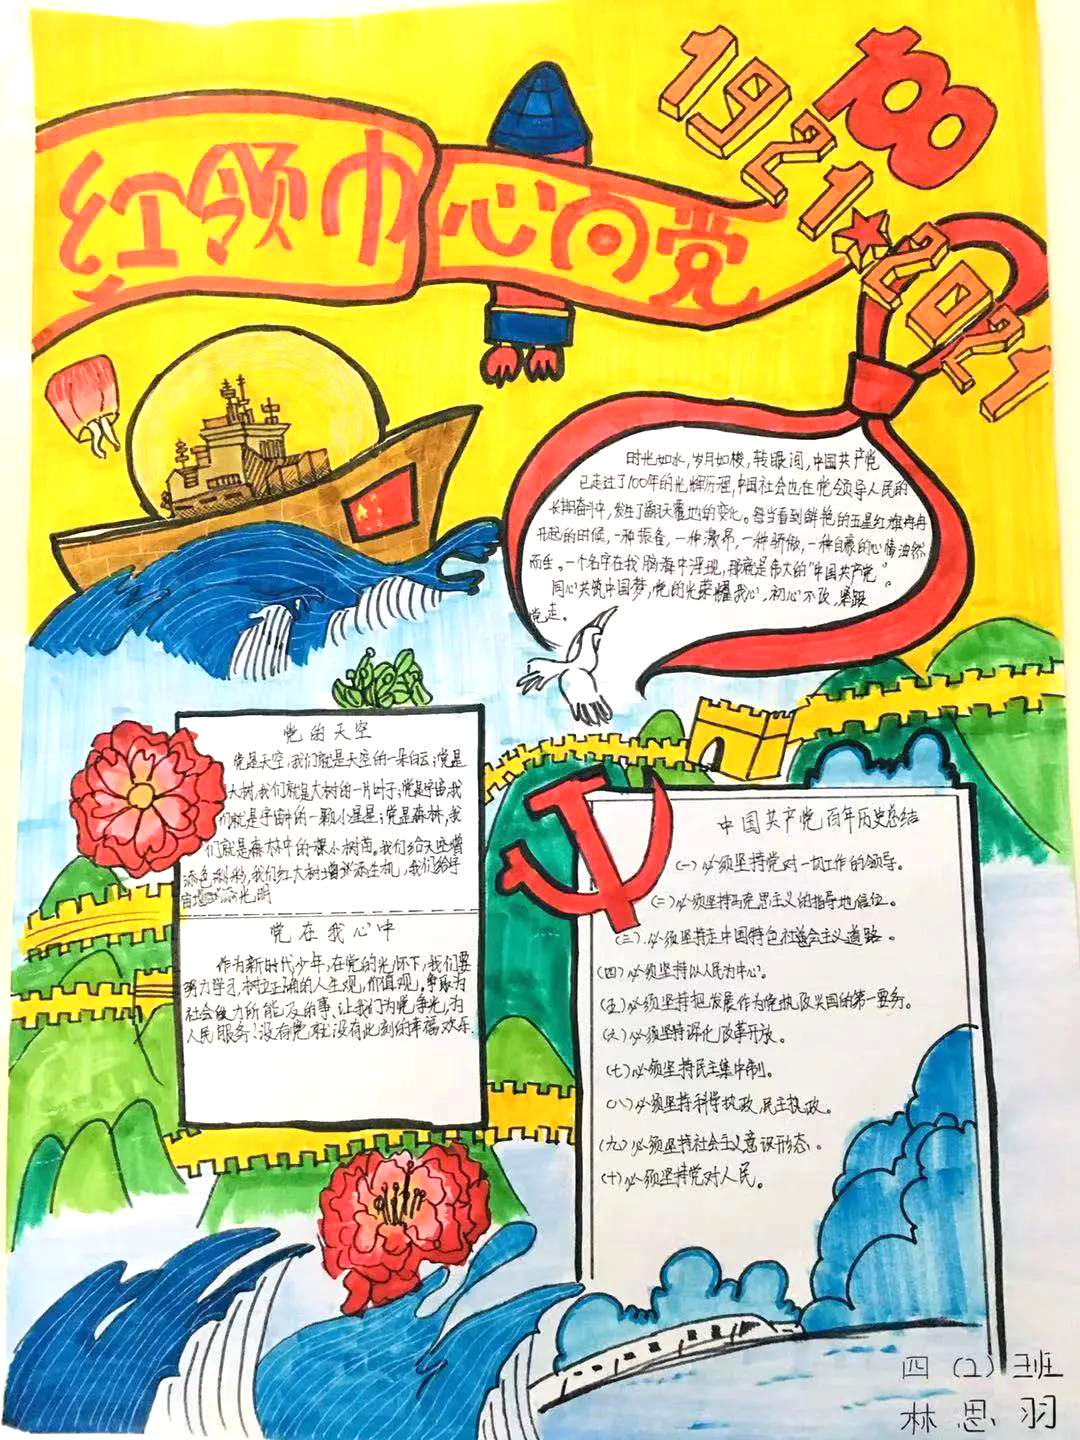 红领巾心向党
100
1921
2021
时光如水，岁月如梭，转眼间，中国共产党
已走过了100年的光辉历程，中国社会也在党领导人民的
长期奋斗中，发生了翻天覆地的变化。每当看到鲜艳的五星红旗冉冉
升起的时候，一种振奋，一种激昂，一种骄傲，一种自豪的心情油然
而生。一个名字在我脑海中浮现，那就是伟大的"中国共产党"。
同心共筑中国梦，党的光荣耀我心，初心不改，紧跟
党走。
党的天空
党是天空，我们就是天空的一朵白云；党是
大树，我们就是大树的一片叶子；党是宇宙，我
们就是宇宙中的一颗小星星；党是森林，我
们就是森林中的一棵小树苗。我们给天空增
添色彩，我们红大树增添生机，我们给宇
宙增添光明
党在我心中
作为新时代少年，在党的光怀下，我们要
努力学习，树立正确的人生观，价值观，争取为
社会做力所能及的事、让我们为党争光，为
人民服务！没有党就没有此刻的幸福欢乐.
中国共产党百年历史总结
(一)必须坚持党对一切工作的领导。
(二)必须坚持马克思主义的指导地位位。
(三)必须坚持走中国特色社会主义道路。
(四)必须坚持以人民为中心。
(五)必须坚持把发展作为党执政兴国的第一要务。
(六)必须坚持深化改革开放。
(七)必须坚持民主集中制。
(八)必须坚持科学执政，民主执政。
(九)必须坚持社会主义意识形态。
(十)必须坚持党对人民。
四(2)班
林思羽